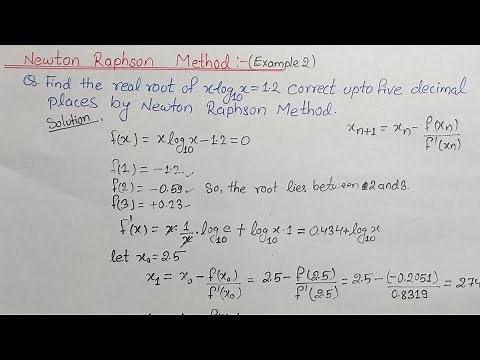 Newton Raphson Method:- (Example 2)
Q. Find the real root of x log₁₀x = 1.2 correct upto five decimal
places by Newton Raphson Method.
Solution.
xₙ₊₁ = xₙ - f(xₙ)/f'(xₙ)
f(x) = x log₁₀x - 1.2 = 0
f(1) = -1.2
f(2) = -0.59 So, the root lies between 2 and 3.
f(3) = +0.23
f'(x) = x·1/x·log₁₀e + log₁₀x·1 = 0.434 + log₁₀x
let x₀ = 2.5
x₁ = x₀ - f(x₀)/f'(x₀) = 2.5 - f(2.5)/f'(2.5) = 2.5 - (-0.2051)/0.8319 = 274